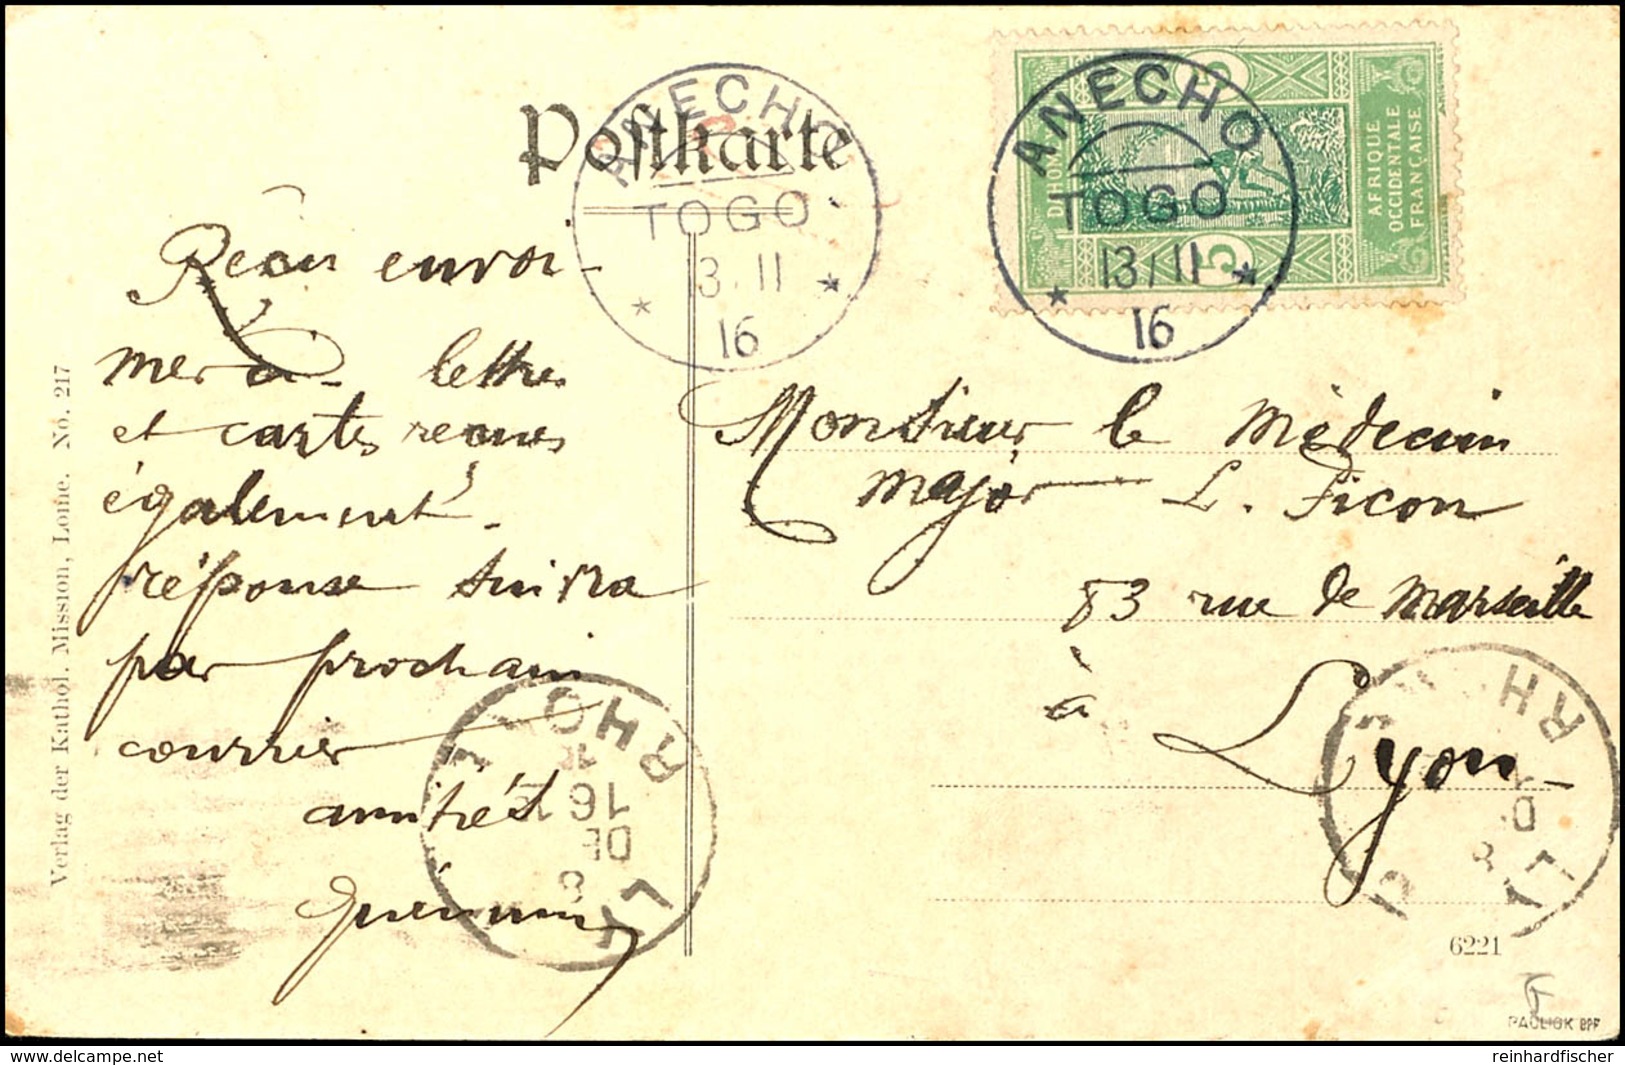 Postkarte
ANECHO
TOGO
13.11
16
ANECHO
TOGO
13.11
16
5
5
AFRIQUE
OCCIDENTALE
FRANÇAISE
Reçu envoi -
merci - lettres
et cartes reçues
également -
réponse suivra
par prochain
courrier
amitiés
Monsieur le Médecin
major L. Ficon
83 rue de Marseille
à
Lyon
RH
16
DE
8
RH
Verlag der Kathol. Mission, Lome. No. 217
6221
PAULIGK BPP
delcampe.net
reinhardfischer